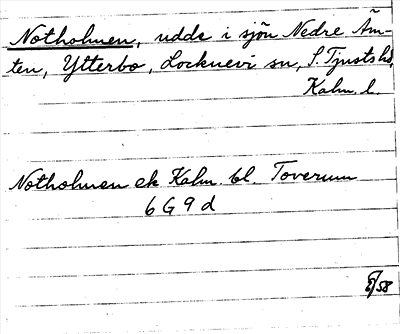 Notholmen, udde i sjön Nedre Äm-
ten, Ytterbo, Locknevi sn, S. Tjusts hd,
Kalm. l.
Notholmen ek Kalm. bl. Toverum
6 G 9 d
58